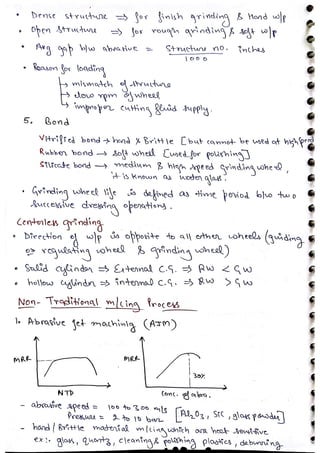 • Dense structure ⇒ for finish grinding & Hand w/p
• Open structure ⇒ for rough grinding & soft w/p
• Avg gap b/w abrasive = Structure no. / 1000 inches
• Reason for loading
→ mismatch of structure
→ slow rpm of wheel
→ improper cutting fluid supply.
5. Bond
Vitrified bond → hard & Brittle [but cannot be used at high
Rubber bond → soft wheel [used for polishing]
Silicate bond → medium & high speed grinding wheel,
it is known as water glass.
• Grinding wheel life is defined as time period b/w two
successive dressing operations.
Centerless grinding
• Direction of w/p is opposite to all other wheels (guiding
or regulating wheel & grinding wheel)
• Solid cylinder ⇒ External C.G. ⇒ RW < GW
• hollow cylinder ⇒ internal C.G. ⇒ RW > GW
Non-Traditional m/cing Process
1. Abrasive jet machining (AJM)
MRR
NTD
MRR
30%
Conc. of abra.
- abrasive speed = 100 to 300 m/s
Pressure = 2 to 10 bar
[Al₂O₃, SiC, glass powder]
- hard/Brittle material m/cing which are heat sensitive
ex:- glass, quartz, cleaning & polishing plastics, deburring